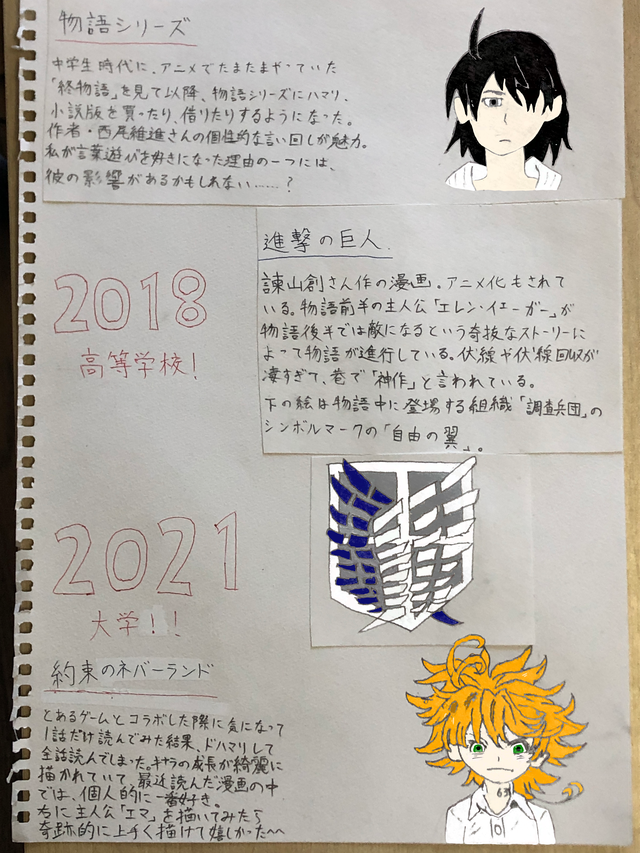 物語シリーズ
中学生時代に、アニメでたまたまやっていた
「終物語」を見て以降、物語シリーズにハマり、
小説版を買ったり、借りたりするようになった。
作者・西尾維進さんの個性的な言い回しが魅力。
私が言葉遊びを好きになった理由の一つには、
彼の影響があるかもしれない……？
進撃の巨人.
諫山創さん作の漫画。アニメ化もされて
いる。物語前半の主人公「エレン・イェーガー」が
物語後半では敵になるという奇抜なストーリーに
よって物語が進行している。伏線や伏線回収が
凄すぎて、巷で「神作」と言われている。
下の絵は物語中に登場する組織「調査兵団」の
シンボルマークの「自由の翼」。
2018
高等学校！
2021
大学！！
約束のネバーランド
とあるゲームとコラボした際に気になって
1話だけ読んでみた結果、ドハマりして
全話読んでしまった。キャラの成長が綺麗に
描かれていて、最近読んだ漫画の中
では、個人的に一番好き。
右に主人公「エマ」を描いてみたら
奇跡的に上手く描けて嬉しかった〜〜